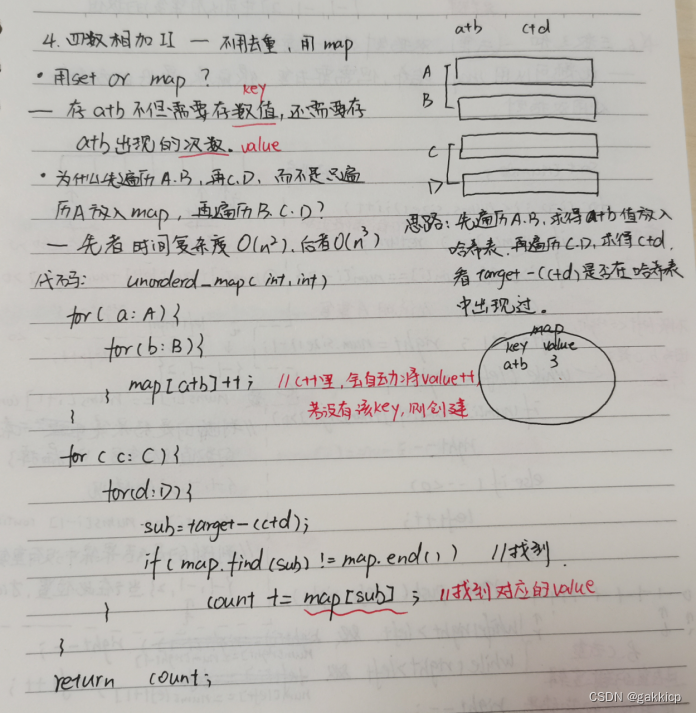 4. 四数相加 II — 不用去重，用 map
a+b c+d
• 用set or map ?
key
— 存 a+b 不但需要存数值，还需要存
a+b 出现的次数。value
A
B
C
D
• 为什么先遍历 A.B，再C.D，而不是只遍
历A放入map，再遍历B.C.D?
— 先者 时间复杂度 O(n²)，后者O(n³)
思路：先遍历A.B，求得a+b值放入
哈希表，再遍历C.D，求得c+d，
看 target-(c+d)是否在哈希表
中出现过。
代码： unorderd_map(int,int)
for( a: A) {
for(b: B){
map[a+b]++ ; //C++里，会自动将value++，
若没有该key，则创建
}
}
map
key value
a+b 3
for ( c: C) {
for(d:D){
sub=target-(c+d);
if( map.find(sub) != map.end() ) //找到.
count += map[sub] ; //找到对应的value
}
}
return count;
CSDN @gakkicp